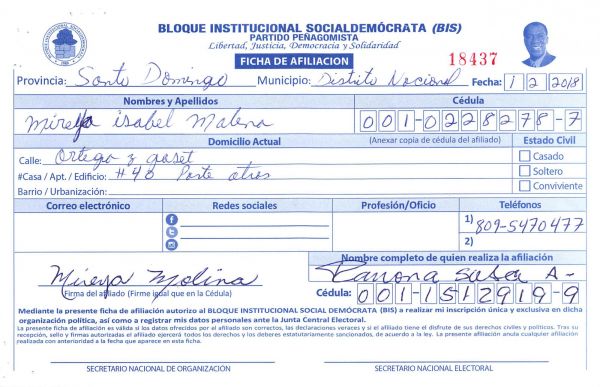 BLOQUE INSTITUCIONAL SOCIALDEMÓCRATA (BIS)
PARTIDO PEÑAGOMISTA
Libertad, Justicia, Democracia y Solidaridad
FICHA DE AFILIACION
18437
Provincia: Santo Domingo Municipio: Distrito Nacional Fecha: 1 2 2018
Nombres y Apellidos Cédula
Mireya isabel Malena 001-0228278-7
Domicilio Actual (Anexar copia de cédula del afiliado) Estado Civil
Calle: Ortega y gaset Casado
#Casa / Apt. / Edificio: #40 Parte atras Soltero
Barrio / Urbanización: Conviviente
Correo electrónico Redes sociales Profesión/Oficio Teléfonos
1) 809-5470477
2)
Nombre completo de quien realiza la afiliación
Mireya Molina Ramona A-
Firma del afiliado (Firme igual que en la Cédula) Cédula: 001-1512919-9
Mediante la presente ficha de afiliación autorizo al BLOQUE INSTITUCIONAL SOCIAL DEMÓCRATA (BIS) a realizar mi inscripción única y exclusiva en dicha
organización política, así como a registrar mis datos personales ante la Junta Central Electoral.
La presente ficha de afiliación es válida si los datos ofrecidos por el afiliado son correctos, las declaraciones veraces y si el afiliado tiene el disfrute de sus derechos civiles y políticos. Tras su
recepción, sello y firmas autorizadas el afiliado ejercerá todos los derechos y los deberes estatutariamente sancionados, de acuerdo a la ley. La presente afiliación anula cualquier afiliación
realizada con anterioridad a la fecha que aparece en esta ficha.
SECRETARIO NACIONAL DE ORGANIZACIÓN SECRETARIO NACIONAL ELECTORAL